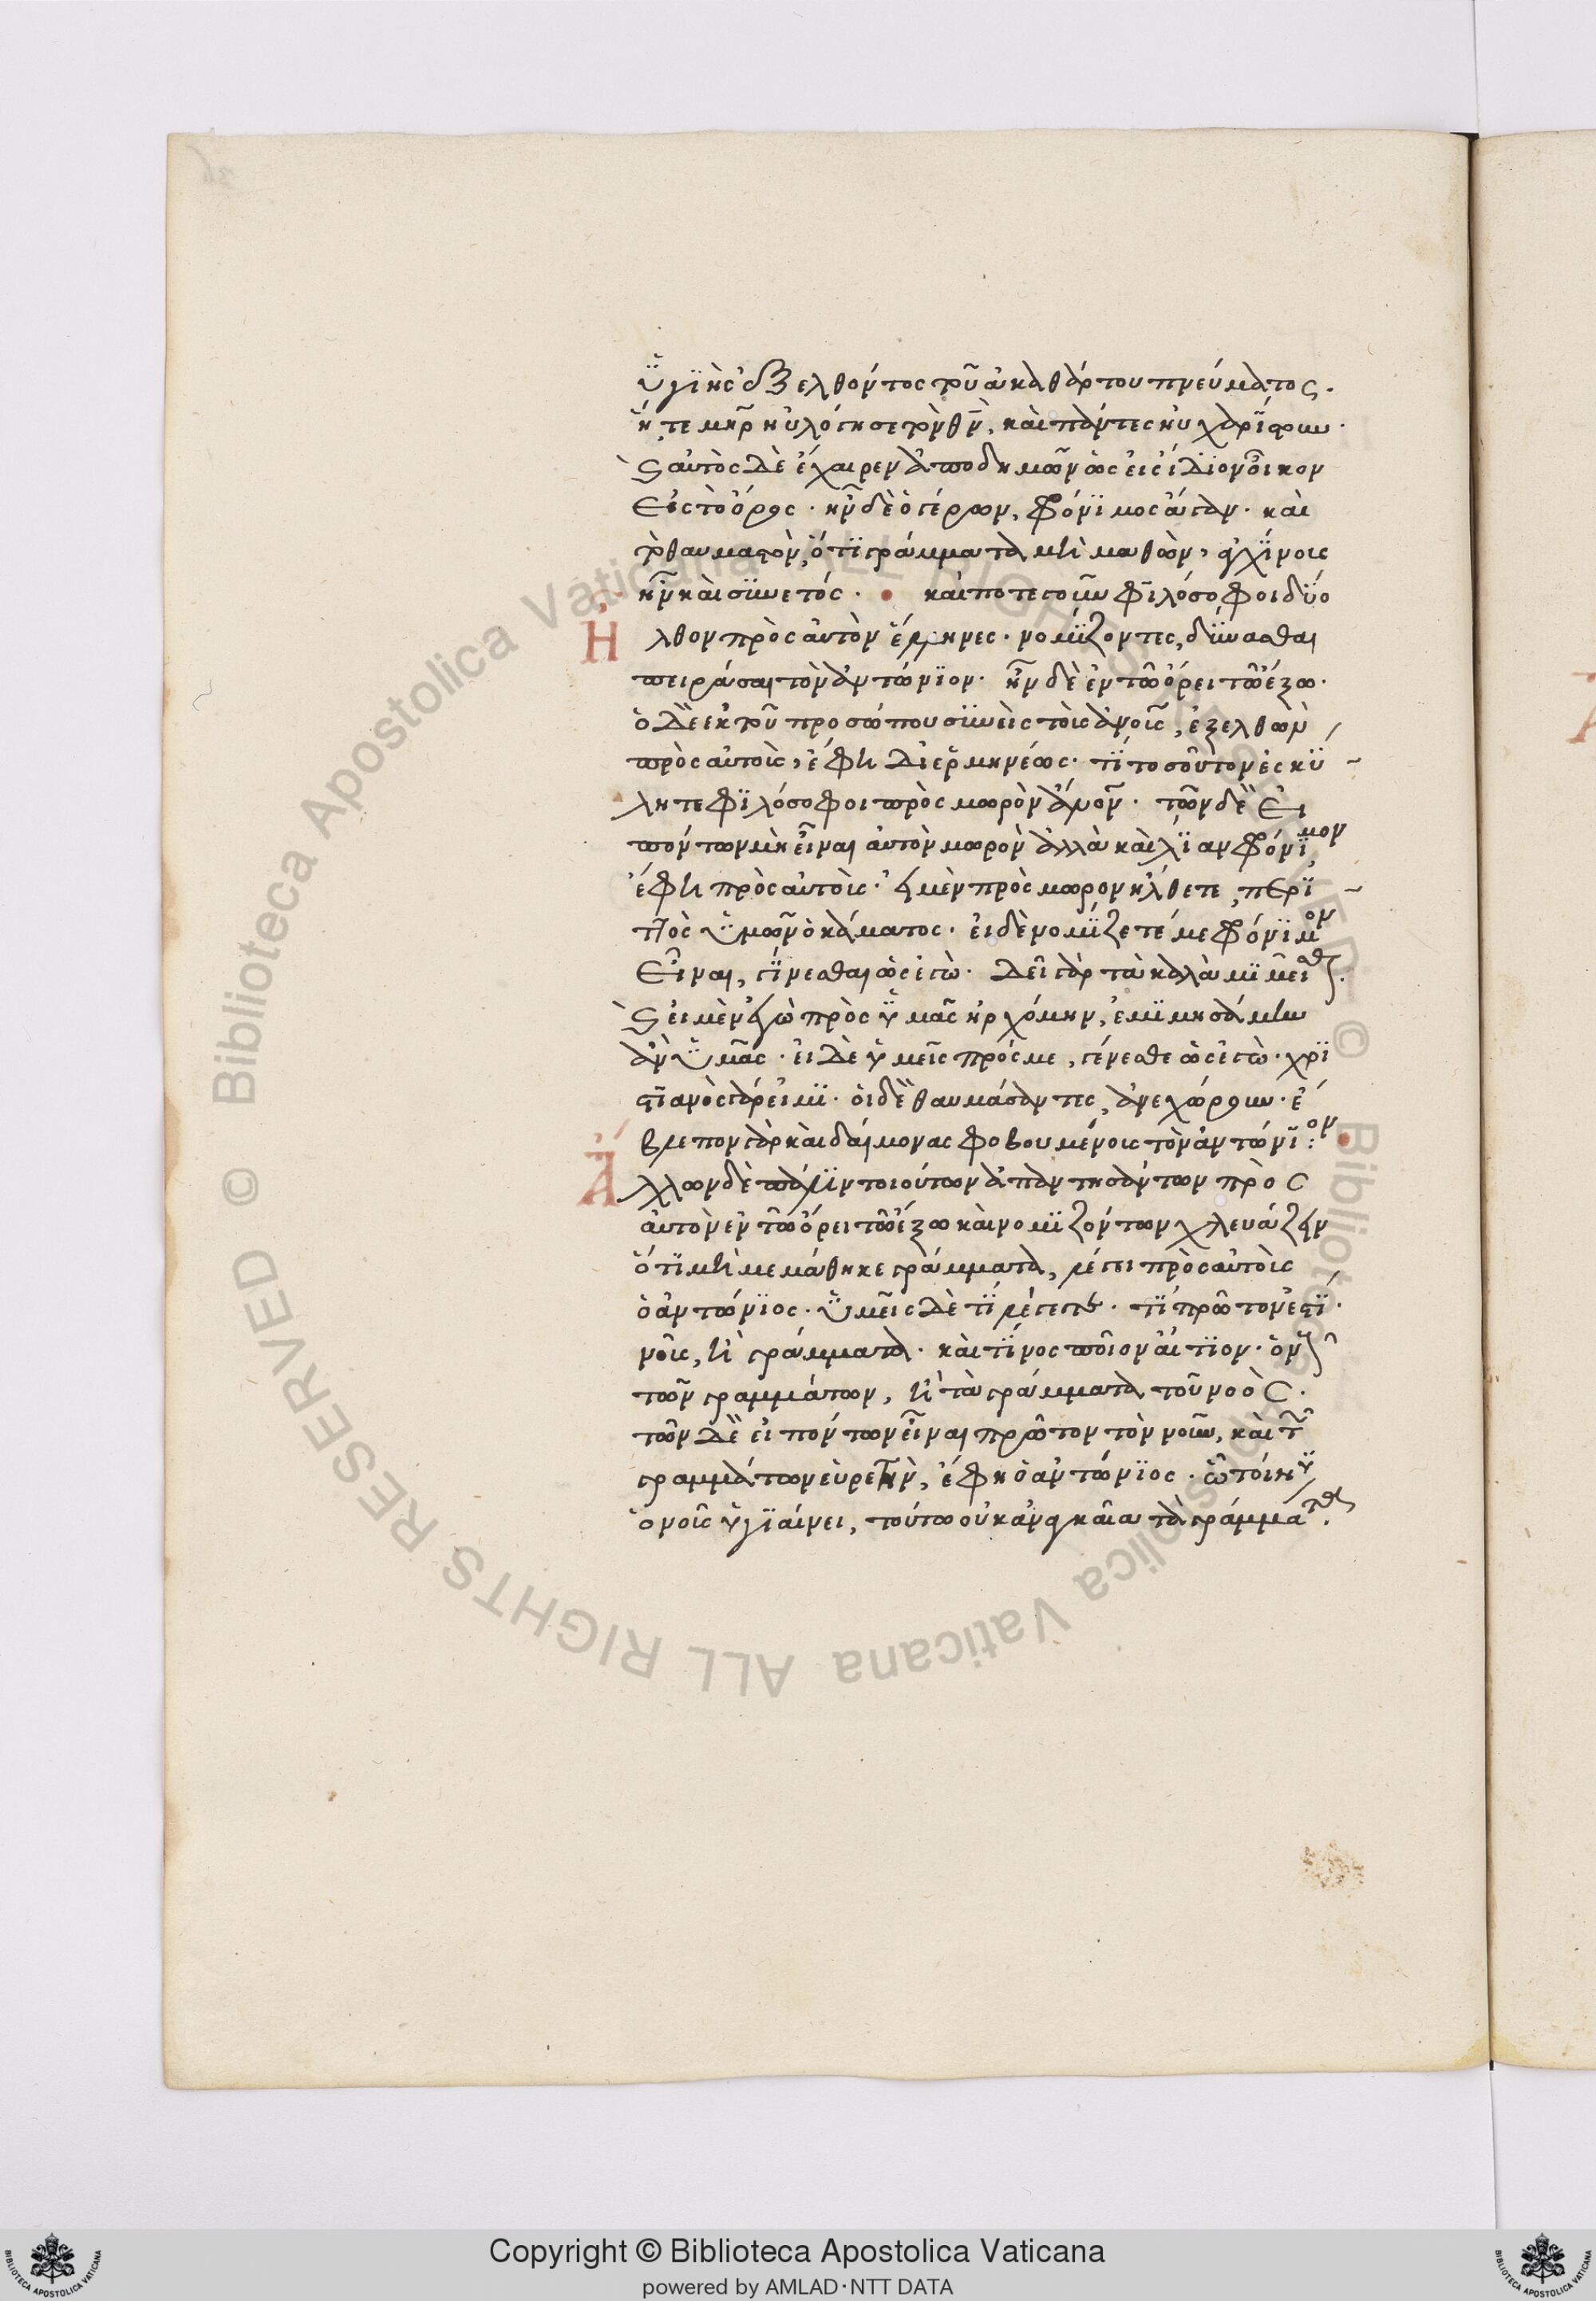 ὑγιὴς ἐξελθόντος τοῦ ἀκαθάρτου πνεύματος.
ἥ, τε μηρ ηὐλόγησε τὸν θν, καὶ πάντες ηὐχαρίστουν·
Ϛ αὐτὸς δὲ ἔχαιρεν ἀποδημῶν ὡς εἰς ἴδιον οἶκον
εἰς τὸ ὄρος· ἦν δὲ ὁ γέρων, φρόνιμος ἄγαν· καὶ
τὸ θαυμαστὸν, ὅτι γράμματα μὴ μαθὼν, ἀγχίνους
ἦν καὶ συνετός· καί ποτε γοῦν φιλόσοφοι δύο
ἦλθον πρὸς αὐτὸν ἕλληνες· νομίζοντες, δύνασθαι
πειράσαι τὸν ἀντώνιον· ἦν δὲ ἐν τῶ ὄρει τῶ ἔξω·
ὁ δὲ ἐκ τοῦ προσώπου συνεὶς τοὺς ἀνους, ἐξελθὼν
πρὸς αὐτοὺς, ἔφη δι ἑρμηνέως· τί τοσοῦτον ἐσκύ
λητε φιλόσοφοι πρὸς μωρὸν ἀνον· τῶν δὲ εἰ
πόντων μὴ εἶναι αὐτὸν μωρὸν ἀλλὰ καὶ λίαν φρόνιμον
ἔφη πρὸς αὐτούς· εἰ μὲν πρὸς μωρον ἤλθετε, περι
ττὸς ὑμῶν ὁ κάματος· εἰ δὲ νομίζετέ με φρόνιμον
εἶναι, γίνεσθαι ὡς ἐγὼ· δεῖ γὰρ τὰ καλὰ μιμεῖσθαι.
Ϛ εἰ μὲν ἐγὼ πρὸς ὑμᾶς ἠρχόμην, ἐμιμησάμην
ἂν ὑμᾶς· εἰ δὲ ὑμεῖς πρός με, γίνεσθε ὡς ἐγὼ· χρι
στιανὸς γάρ εἰμι· οἱ δὲ θαυμάσαντες, ἀνεχώρουν· ἔ
βλεπον γὰρ καὶ δαίμονας φοβουμένους τὸν ἀντώνιον:
Ἄλλων δὲ πάλιν τοιούτων ἀπαντησάντων πρὸς
αὐτὸν ἐν τῶ ὄρει τῶ ἔξω καὶ νομιζόντων χλευάζειν
ὅτι μὴ μεμάθηκε γράμματα, λέγει πρὸς αὐτοὺς
ὁ ἀντώνιος· ὑμεῖς δὲ τί λέγετε· τί πρῶτον ἐστί·
νοῦς, ἢ γράμματα· καὶ τίνος ποῖον αἴτιον· ὁ νοῦς
τῶν γραμμάτων, ἢ τὰ γράμματα τοῦ νοός.
τῶν δὲ εἰπόντων εἶναι πρῶτον τὸν νοῦν, καὶ τῶν
γραμμάτων εὑρετὴν, ἔφη ὁ ἀντώνιος· ὧ τοίνυν
ὁ νοῦς ὑγιαίνει, τούτω οὐκ ἀναγκαῖα τὰ γράμματα.
Copyright © Biblioteca Apostolica Vaticana
powered by AMLAD·NTT DATA